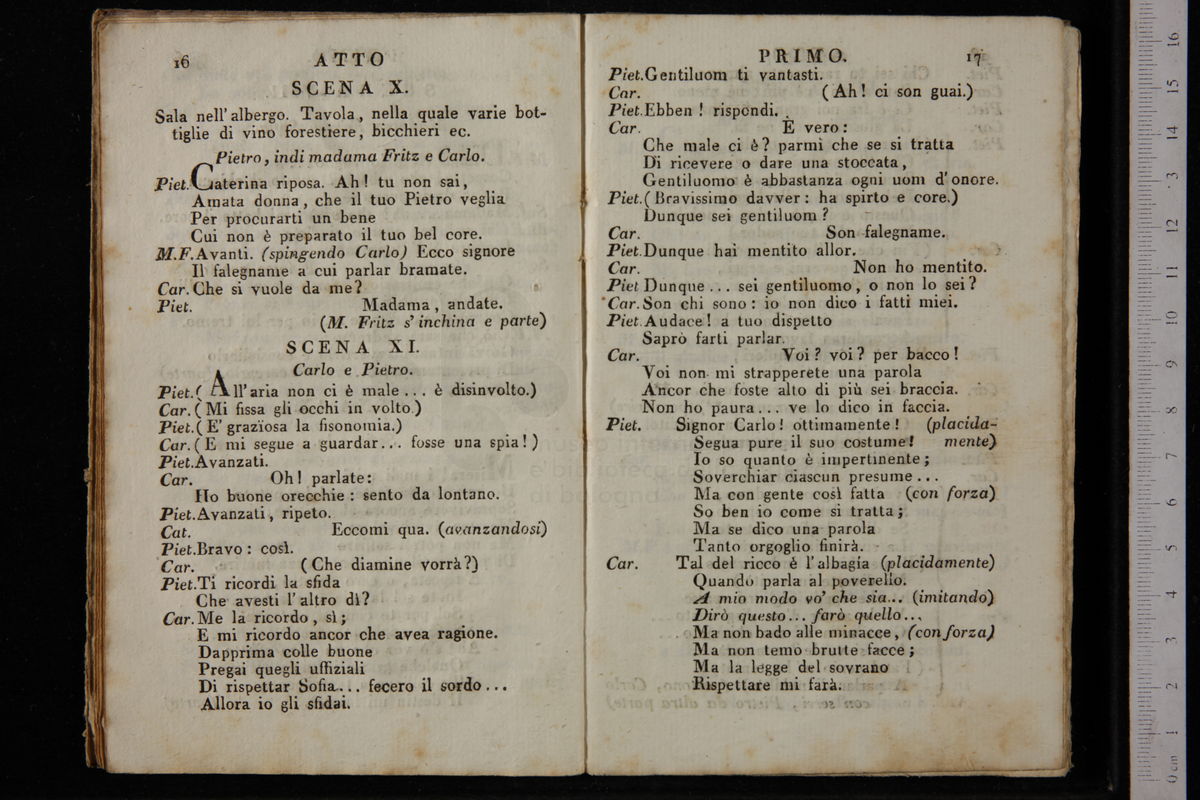 16 ATTO
SCENA X.
Sala nell' albergo. Tavola, nella quale varie bot-
tiglie di vino forestiere, bicchieri ec.
Pietro, indi madama Fritz e Carlo.
Piet. Caterina riposa. Ah! tu non sai,
Amata donna, che il tuo Pietro veglia
Per procurarti un bene
Cui non è preparato il tuo bel core.
M.F. Avanti. (spingendo Carlo) Ecco signore
Il falegname a cui parlar bramate.
Car. Che si vuole da me?
Piet. Madama, andate.
(M. Fritz s' inchina e parte)
SCENA XI.
Carlo e Pietro.
Piet. ( All' aria non ci è male ... è disinvolto.)
Car. ( Mi fissa gli occhi in volto.)
Piet. ( E' graziosa la fisonomia.)
Car. ( E mi segue a guardar... fosse una spia! )
Piet. Avanzati.
Car. Oh! parlate:
Ho buone orecchie: sento da lontano.
Piet. Avanzati, ripeto.
Cat. Eccomi qua. (avanzandosi)
Piet. Bravo: così.
Car. ( Che diamine vorrà?)
Piet. Ti ricordi la sfida
Che avesti l' altro dì?
Car. Me la ricordo, sì;
E mi ricordo ancor che avea ragione.
Dapprima colle buone
Pregai quegli uffiziali
Di rispettar Sofia... fecero il sordo...
Allora io gli sfidai.
PRIMO. 17
Piet. Gentiluom ti vantasti.
Car. ( Ah! ci son guai.)
Piet. Ebben! rispondi.
Car. È vero:
Che male ci è? parmi che se si tratta
Di ricevere o dare una stoccata,
Gentiluomo è abbastanza ogni uom d' onore.
Piet. ( Bravissimo davver: ha spirto e core.)
Dunque sei gentiluom?
Car. Son falegname.
Piet. Dunque hai mentito allor.
Car. Non ho mentito.
Piet Dunque... sei gentiluomo, o non lo sei?
Car. Son chi sono: io non dico i fatti miei.
Piet. Audace! a tuo dispetto
Saprò farti parlar.
Car. Voi? voi? per bacco!
Voi non mi strapperete una parola
Ancor che foste alto di più sei braccia.
Non ho paura... ve lo dico in faccia.
Piet. Signor Carlo! ottimamente! (placida-
Segua pure il suo costume! mente)
Io so quanto è impertinente;
Soverchiar ciascun presume...
Ma con gente così fatta (con forza)
So ben io come si tratta;
Ma se dico una parola
Tanto orgoglio finirà.
Car. Tal del ricco è l' albagia (placidamente)
Quando parla al poverello.
A mio modo vo' che sia... (imitando)
Dirò questo... farò quello...
Ma non bado alle minacce, (con forza)
Ma non temo brutte facce;
Ma la legge del sovrano
Rispettare mi farà.